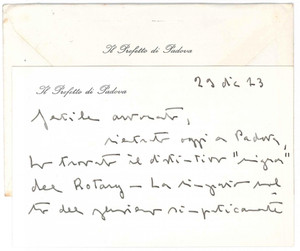 Il Prefetto di Padova
Il Prefetto di Padova
29 dic 23
Gentile avvocato,
rientrato oggi a Padova,
ho trovato il distintivo "mignon"
del Rotary — La ringrazio mol
to del pensiero simpaticamente